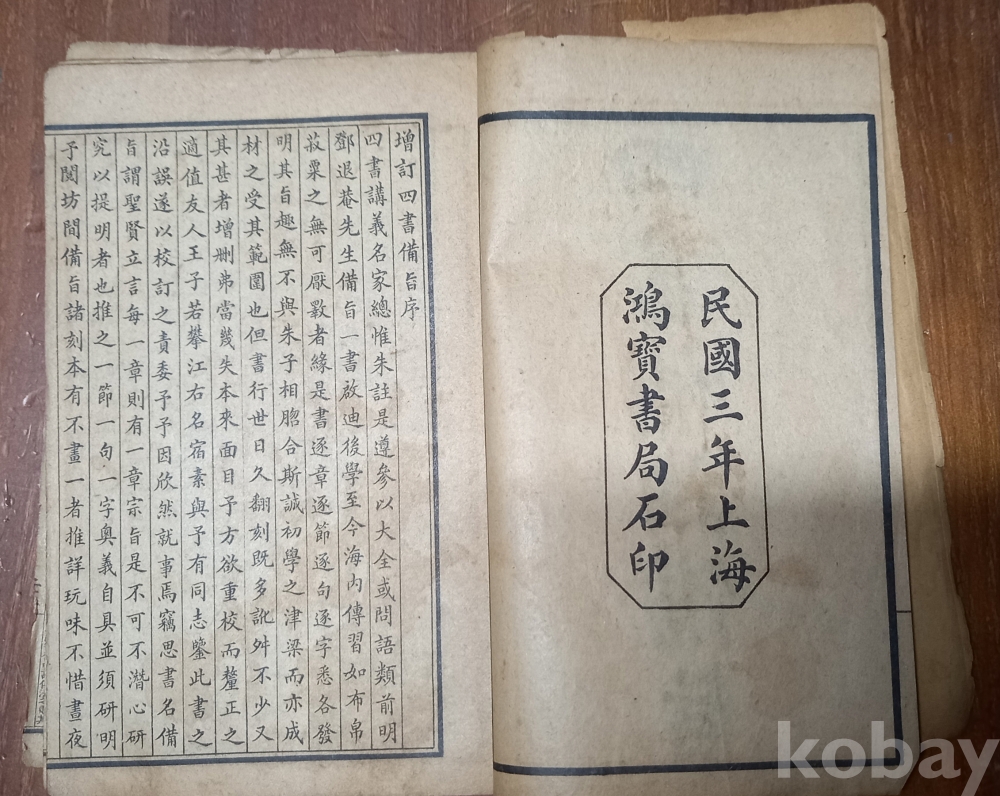 民國三年上海
鴻寶書局石印
增訂四書備旨序
四書講義名家總惟朱註是遵參以大全或問語類前明
鄧退菴先生備旨一書啟迪後學至今海內傳習如布帛
菽粟之無可厭斁者緣是書逐章逐節逐句逐字悉各發
明其旨趣無不與朱子相脗合斯誠初學之津梁而亦成
材之受其範圍也但書行世日久翻刻既多訛舛不少又
其甚者增刪弗當幾失本來面目予方欲重校而釐正之
適值友人王子若攀江右名宿素與予有同志鑒此書之
沿誤遂以校訂之責委予予因欣然就事焉竊思書名備
旨謂聖賢立言每一章則有一章宗旨是不可不潛心研
究以提明者也推之一節一句一字奧義自具並須研明
予閱坊間備旨諸刻本有不畫一者推詳玩味不惜晝夜
kobay